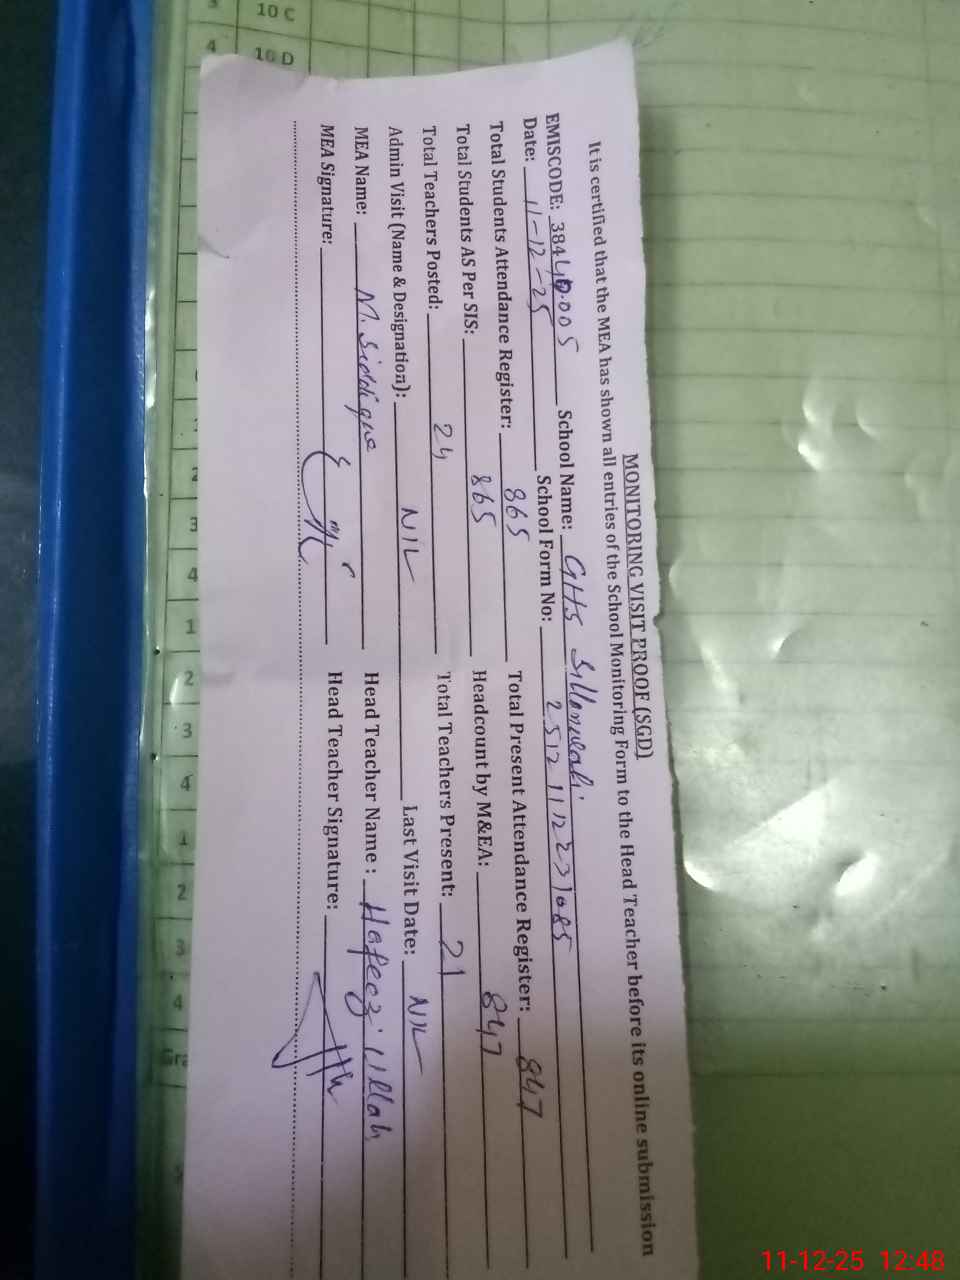 MONITORING VISIT PROOF (SGD)
It is certified that the MEA has shown all entries of the School Monitoring Form to the Head Teacher before its online submission
EMISCODE: 38440005 School Name: GHS Sillanwali
Date: 11-12-25 School Form No:
Total Students Attendance Register: 865 Total Present Attendance Register: 847
Total Students AS Per SIS: 865 Headcount by M&EA: 847
Total Teachers Posted: 24 Total Teachers Present: 21
Admin Visit (Name & Designation): NIL Last Visit Date: NIL
MEA Name: M. Siddique Head Teacher Name : Hafeez Ullah
MEA Signature: Head Teacher Signature:
10 C
4 10 D
3
4
1
2
3
4
1
2
3
4
Gra
11-12-25 12:48